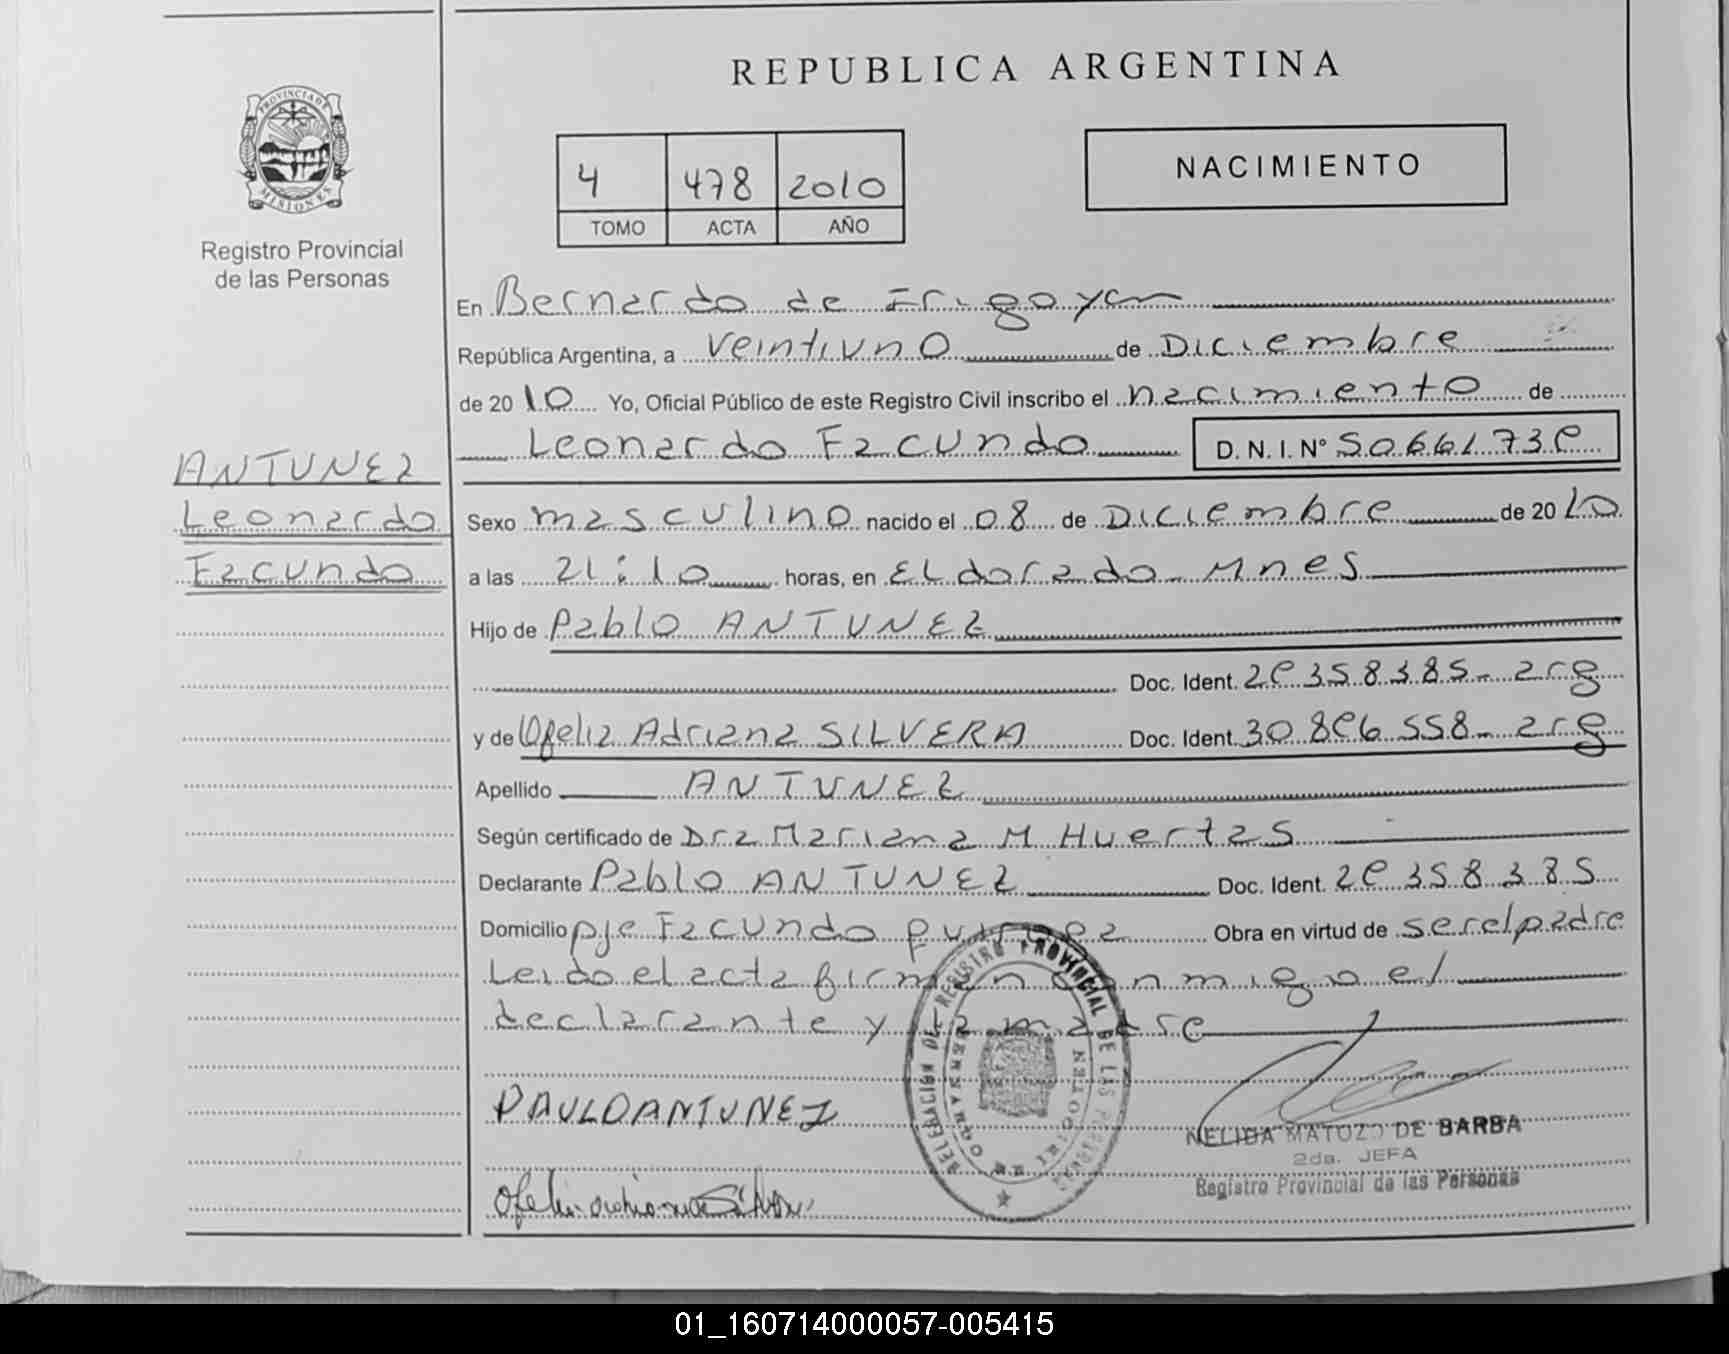 REPUBLICA ARGENTINA
PROVINCIA DE MISIONES
Registro Provincial
de las Personas
4 478 2010
TOMO ACTA AÑO
NACIMIENTO
En Bernardo de Irigoyen
República Argentina, a Veintiuno de Diciembre
de 2010 Yo, Oficial Público de este Registro Civil inscribo el nacimiento de
Leonardo Facundo D. N. I. Nº
ANTUNEZ
Leonardo
Facundo
Sexo masculino nacido el 08 de Diciembre de 2010
a las 21:10 horas, en Eldorado Mnes
Hijo de Pablo ANTUNEZ
Doc. Ident. 29358385- arg
y de Ofelia Adriana SILVERA Doc. Ident. 30896558- arg
Apellido ANTUNEZ
Según certificado de Dra Mariana M Huertas
Declarante Pablo ANTUNEZ Doc. Ident. 29358385
Domicilio pje Facundo Quiroga Obra en virtud de ser el padre
Leido el acta firman conmigo el
declarante y la madre
PAULOANTUNEZ
NELIDA MATOZO DE BARBA
2da. JEFA
Registro Provincial de las Personas
DELEGACIÓN DEL REGISTRO PROVINCIAL DE LAS PERSONAS
01_160714000057-005415